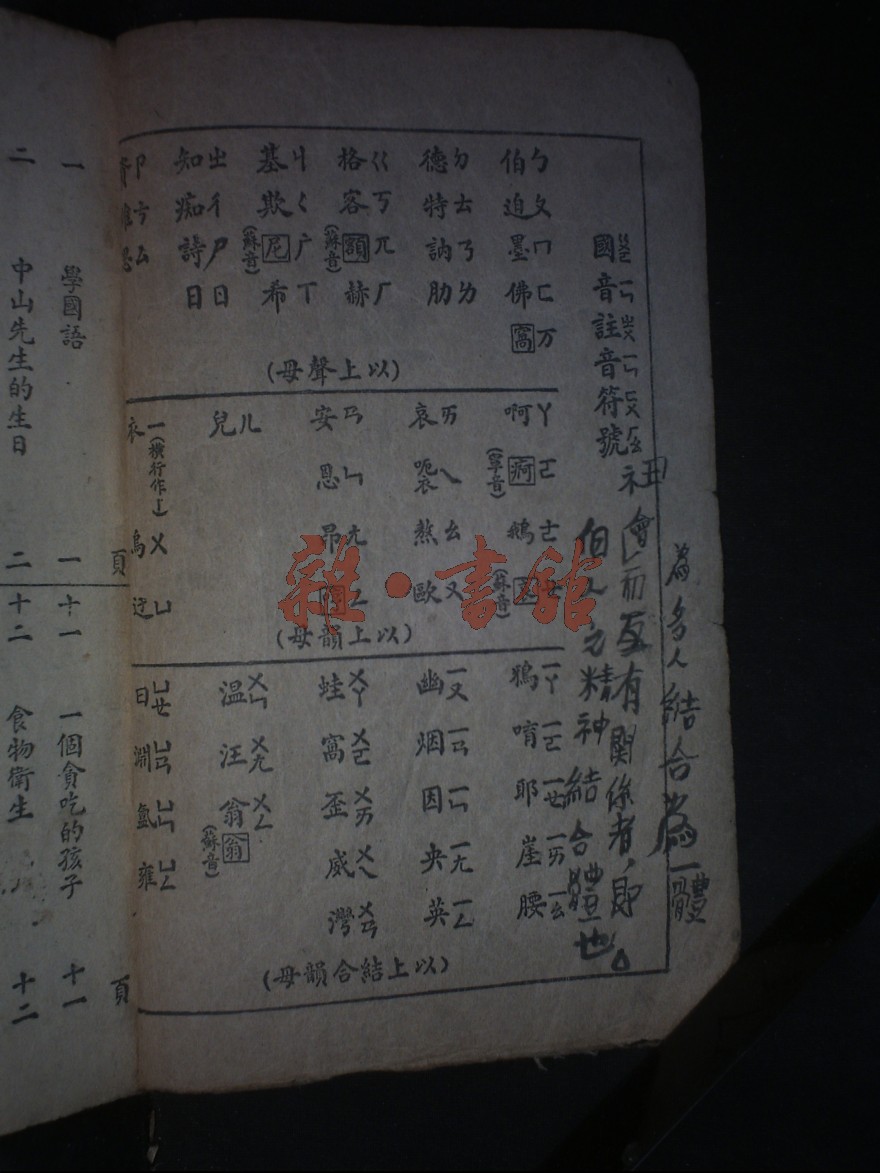 國音註音符號
ㄅ伯
ㄆ迫
ㄇ墨
ㄈ佛
万窩
ㄉ德
ㄊ特
ㄋ訥
ㄌ肋
ㄍ格
ㄎ客
兀額(蘇音)
ㄏ赫
ㄐ基
ㄑ欺
广尼(蘇音)
ㄒ希
ㄓ知
ㄔ痴
ㄕ詩
ㄖ日
ㄗ
ㄘ
ㄙ
(以上聲母)
ㄚ啊
ㄛ痾(單音)
ㄜ鵝
ㄞ哀
ㄟ呃衣
ㄠ熬
ㄡ歐
ㄢ安
ㄣ恩
ㄤ昂
ㄥ
ㄦ兒
一衣(橫行作丨)
ㄨ烏
ㄩ迂
(以上韻母)
一ㄚ鴉
一ㄛ唷
一ㄝ耶
一ㄞ崖
一ㄠ腰
一ㄡ幽
一ㄢ烟
一ㄣ因
一ㄤ央
一ㄥ英
ㄨㄚ蛙
ㄨㄛ窩
ㄨㄞ歪
ㄨㄟ威
ㄨㄢ灣
ㄨㄣ溫
ㄨㄤ汪
ㄨㄥ翁翁(蘇音)
ㄩㄝ曰
ㄩㄢ淵
ㄩㄣ氳
ㄩㄥ雍
(以上結合韻母)
為多人結合為一體
而互有關係者,即
個人之精神結合體也。
頁
一 學國語 一
二 中山先生的生日 二
頁
十一 一個貪吃的孩子 十一
十二 食物衛生 十二
雜·書館